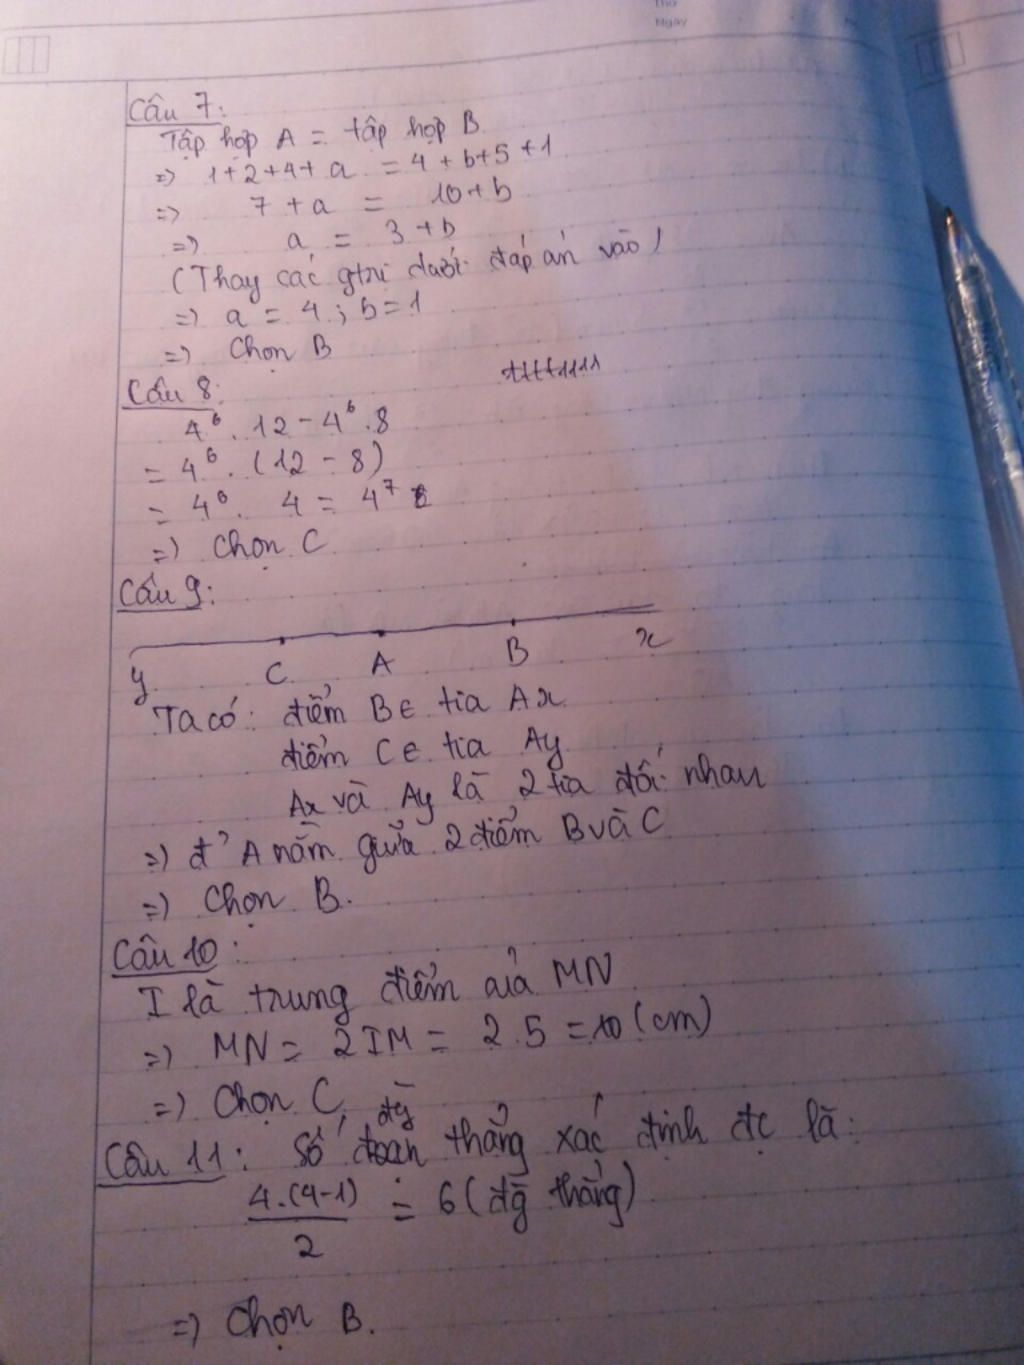 Thứ
Ngày
Câu 7:
Tập hợp A = tập hợp B
=> 1+2+4+ a = 4 + b+5 +1
=> 7 + a = 10 + b
=> a = 3 + b
(Thay các gtrị dưới đáp án vào)
=> a = 4 ; b = 1
=> Chọn B
Câu 8:
4⁶ . 12 - 4⁶ . 8
= 4⁶ . (12 - 8)
= 4⁶ . 4 = 4⁷
=> Chọn C
Câu 9:
y C A B x
Ta có: điểm B ∈ tia Ax
điểm C ∈ tia Ay
Ax và Ay là 2 tia đối nhau
=> đ' A nằm giữa 2 điểm B và C
=> Chọn B.
Câu 10:
I là trung điểm của MN
=> MN = 2IM = 2.5 = 10 (cm)
=> Chọn C.
Câu 11: Số đg thẳng xác định đc là:
4.(4-1)/2 = 6 (đg thẳng)
=> Chọn B.